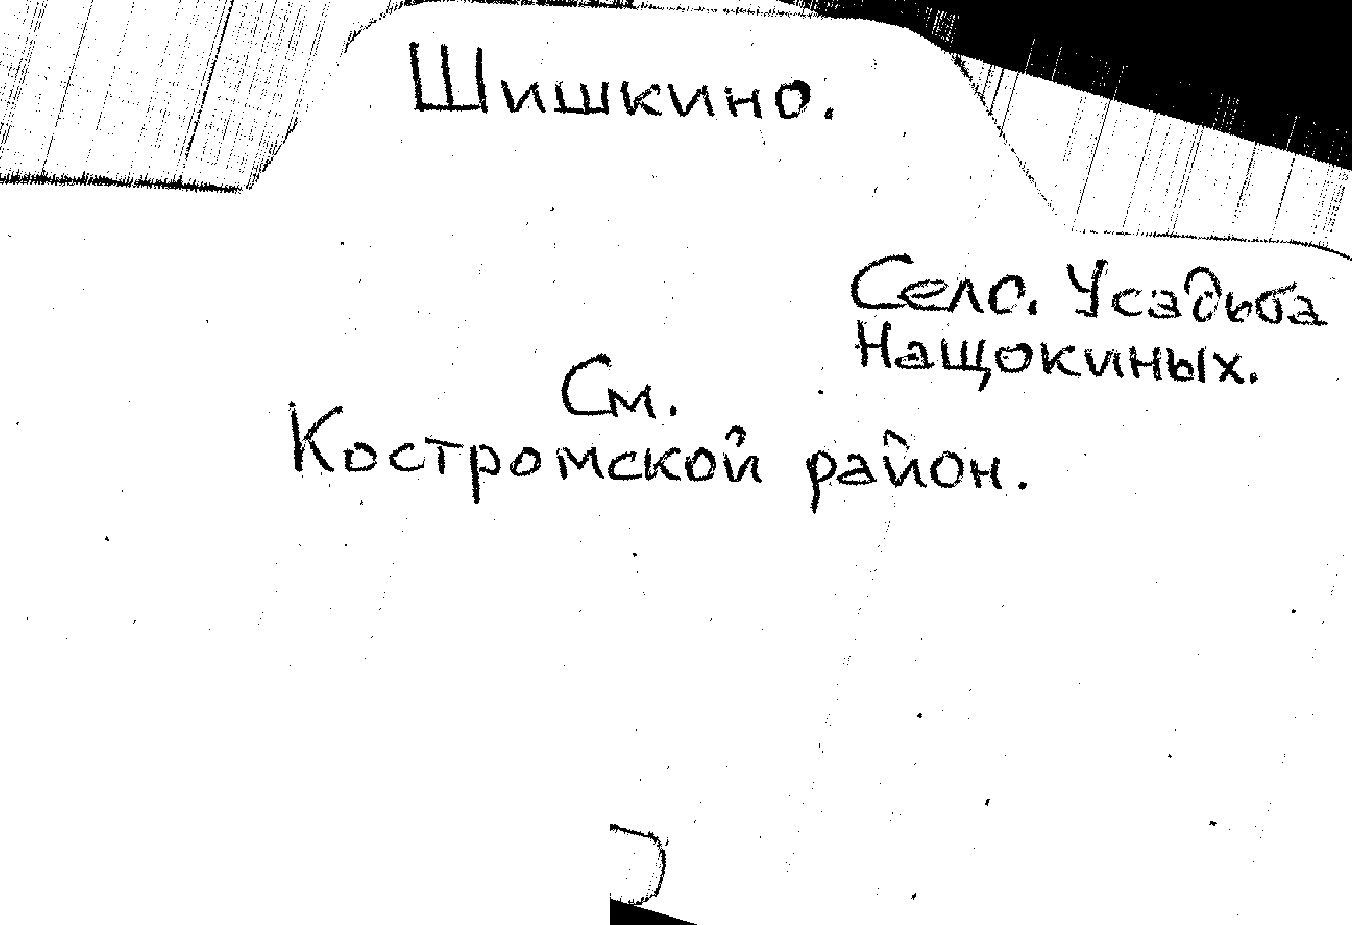 Шишкино.
Село. Усадьба
Нащокиных.
См.
Костромской район.